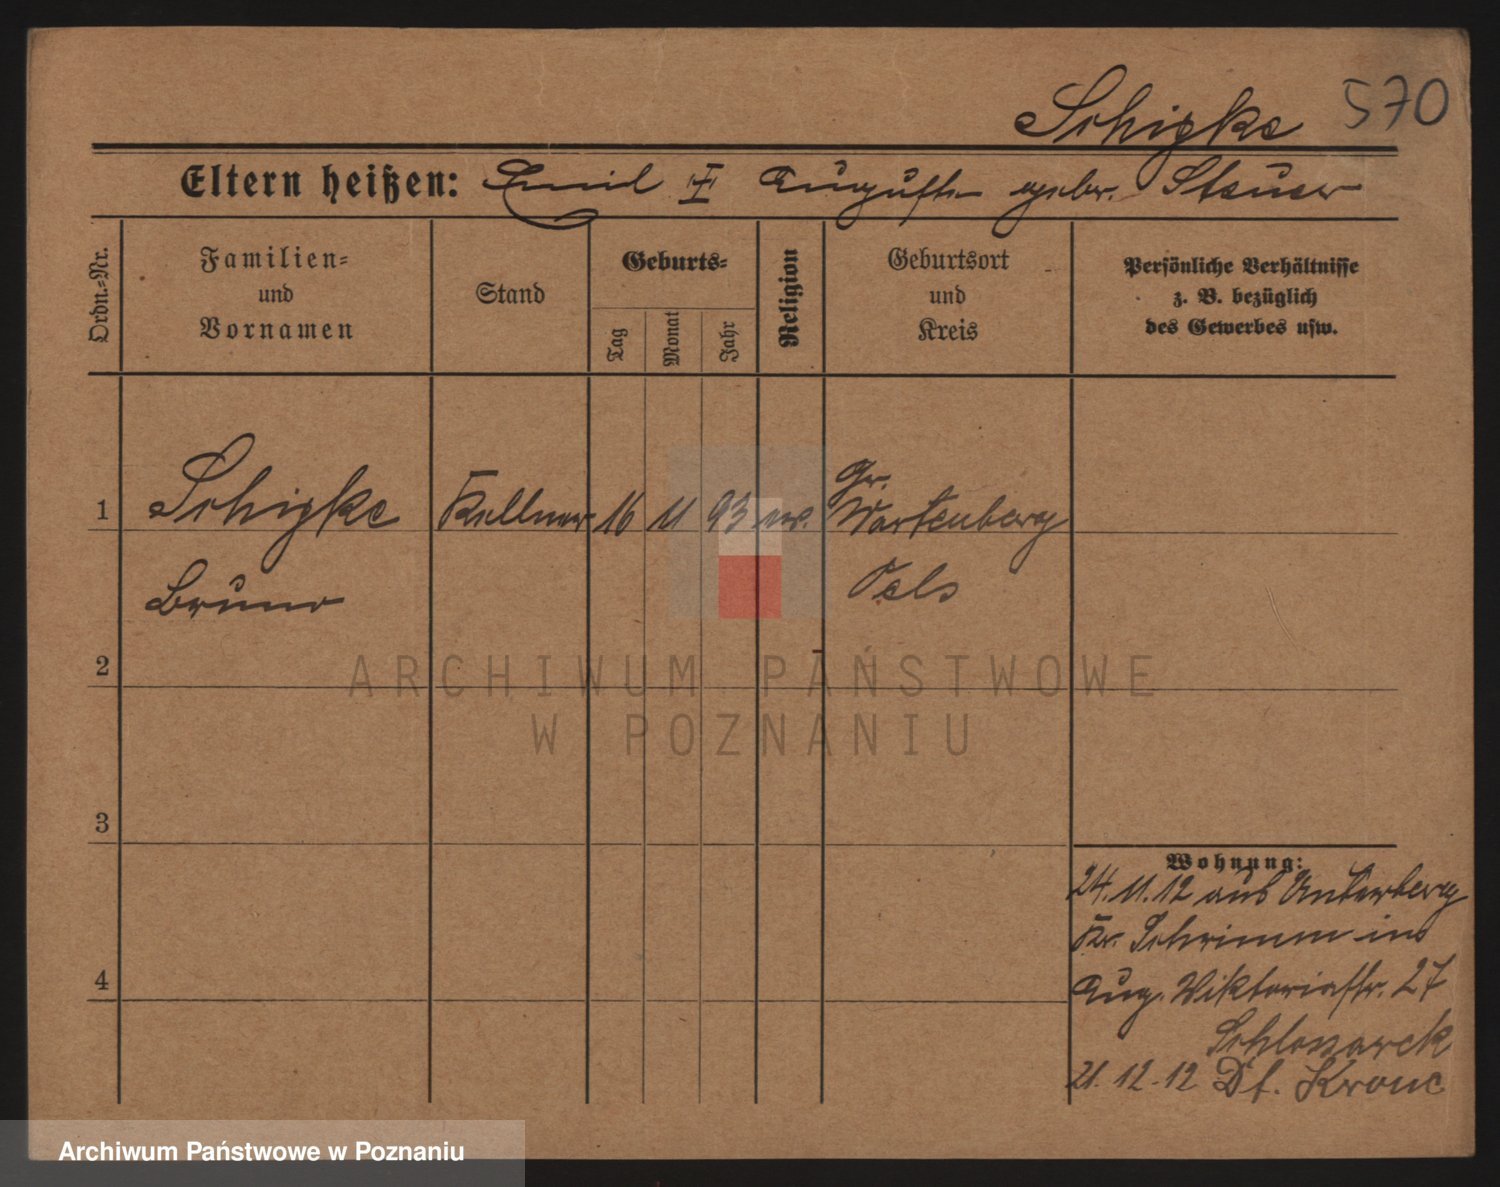 Schigke 570
Eltern heißen: Emil u. Auguste gebr. Steuer
Ordn.-Nr.
Familien-
und
Vornamen
Stand
Geburts-
Tag
Monat
Jahr
Religion
Geburtsort
und
Kreis
Persönliche Verhältnisse
z. B. bezüglich
des Gewerbes usw.
1 Schigke Kellner 16 11 93 ev. Gr. Wartenberg
Bruno Oels
2
3
4
Wohnung:
24.11.12 aus Unterberg
Kr. Schrimm ins
Aug. Viktoriastr. 27
21.12.12 Dt. Krone
ARCHIWUM PAŃSTWOWE
W POZNANIU
Archiwum Państwowe w Poznaniu